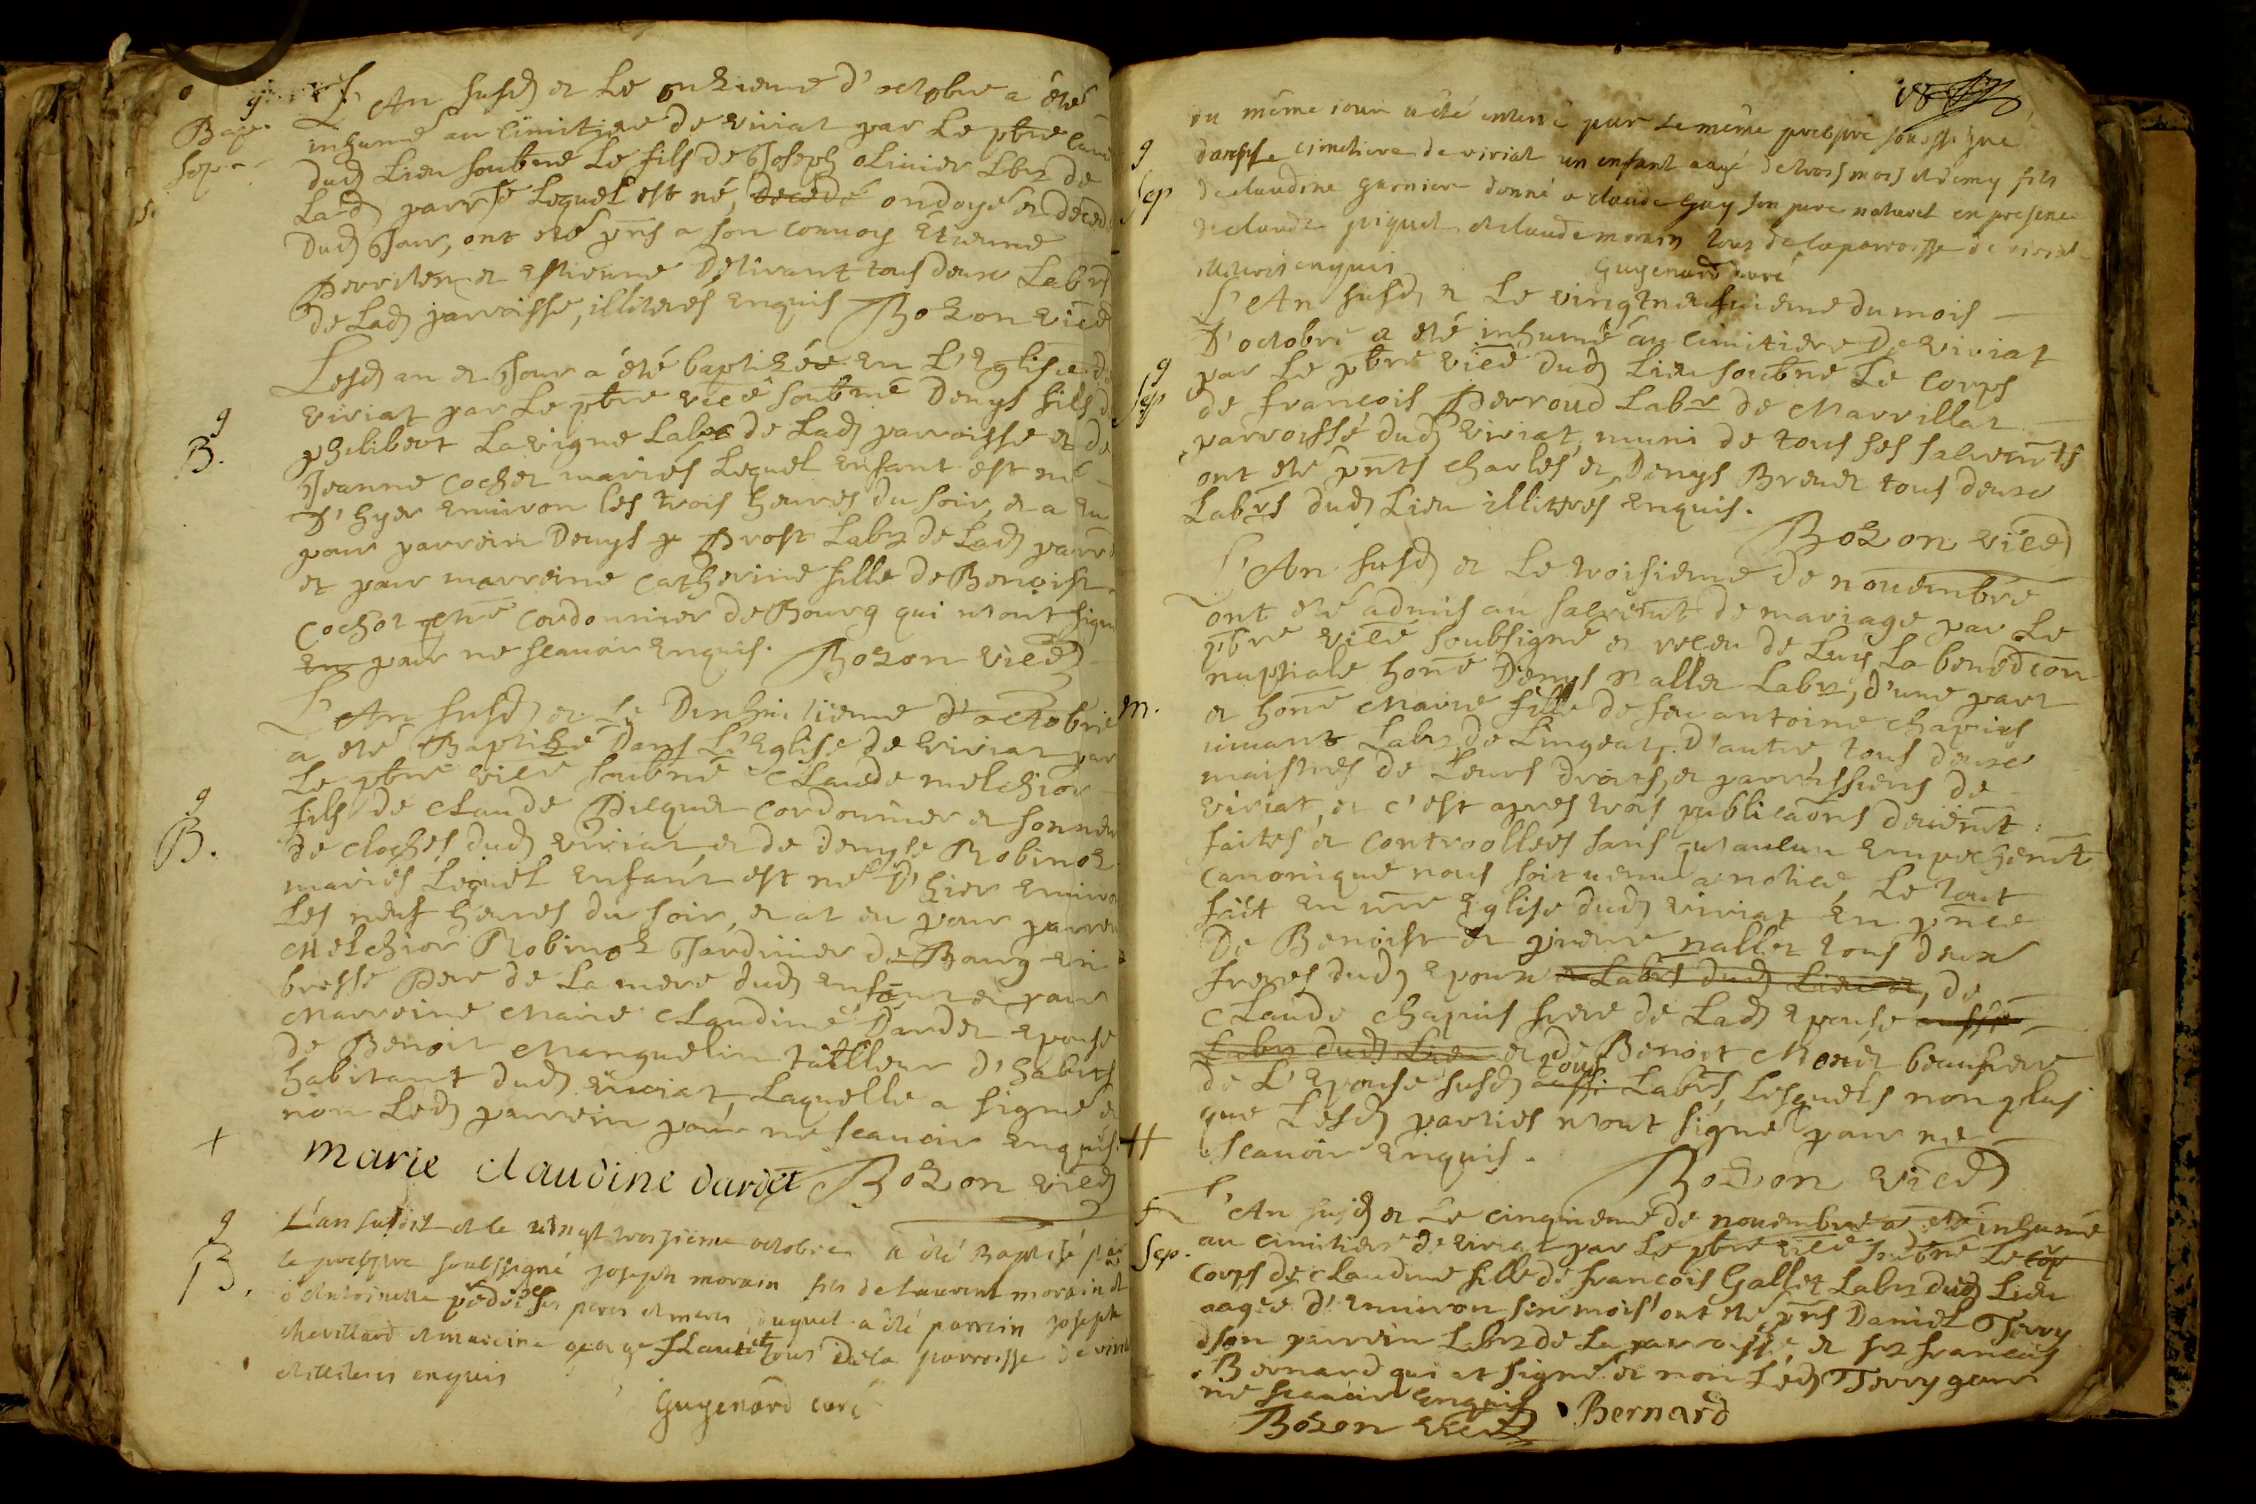 L'An susd et Le onzieme d'octobre a été
inhumé au cimitiere de viriat par Le ptre
dud Lieu soubné Le fils de Joseph olivier Lbr de
Lad parrse Lequel est né, decedé ondoyé et decedé
Dud Jour, ont eté pns a son convoy Etienne
Perriden et Estienne Delivant tous deux Labrs
de Lad parroisse, illiteres enquis Bozon vice
B.
Lesd an et Jour a été baptizée en L'Eglise de
viriat par Le ptre vice soubné Denys fils d
philibert Lavigne Labr de Lad parroisse et de
Jeanne Cochet maries Lequel enfant est né
D'hyer environ les trois heures du soir, et a eu
pour parrein Denys p Prost Labr de Lad parr
et pour marreine Catherine fille de Benoist
Cochet me cordonnier de Bourg qui n'ont signé
en pour ne scavoir enquis. Bozon vice
L'An susd et Le Dixhuitieme d'octobre
a eté Baptizé Dans L'Eglise de viriat par
Le ptre vice soubné Claude melchior
B.
fils de Claude Picquet cordonnier et sonneur
de cloches dud viriat, et de denyse Robinoz
mariés Lequel enfant est né D'hier environ
Les neuf heures du soir, et at eu pour parrein
Melchior Robinoz Jardinier de Bourg en
bresse Pere de La mere dud enfant et pour
Marreine Marie Claudine Dardet epouse
de Benoit Manguelin tailleur d'habits
habitant dud viriat, Laquelle a signé et
non Led parrein pour ne scavoir enquis.
+
marie claudine dardet Bozon vice
L'an susdit et le vingt troisieme octobre a été Baptisé par
B.
le prebstre soubssigné joseph morain fils de laurent morain et
d'Antoinette ses peres et meres duquel a été parrein joseph
chevillard et marreine tous de la parroisse de viriat
illiteres enquis
Guyenard curé
du même jour a été enterré par le même prebstre soussigné
Sep
dans le cimetiere de viriat un enfant aagé de trois mois et demy fils
de claudine garnier donné a claude Guy son pere naturel en presence
de claude piquet et claude morain tous de la parroisse de viriat
illiteres enquis Guyenard curé
L'An susd et Le vingtneufvieme du mois
D'octobre a eté inhumé au cimitiere de viriat
Sep
par Le ptre vice dud Lieu soubné Le corps
de francois Perroud Labr de Marrillat
parroisse dud viriat, muni de tous ses sacremts
ont eté pnts Charles et Denys Brevet tous deux
Labrs dud Lieu illiteres enquis.
Bozon vice
L'An susd et Le troisieme de novembre
ont eté admis au sacremt de mariage par Le
ptre vice soubsigné et receu de Luy La benedion
nuptiale honé Denys nallet Labr, d'une part
m.
et honé Marie fille de feu antoine chapuis
vivant Labr de Lingeat, d'autre, tous deux
maistres de Leurs droits, et parroissiens de
viriat, et c'est apres trois publicaons deuemt
faites et controollées sans qu'aucun empechemt
canonique nous soit venu a notice, Le tout
fait en nre Eglise dud viriat en pnce
De Benoist et pierre nallet tous deux
freres dud epoux et Labrs dud Lieu et, de
Claude chapuis frere de Lad epouse aussi
Labr dud Lieu et de Benoit Monet beaufrere
de L'epouse susd aussi tous Labrs, Lesquels non plus
que Lesd parties n'ont signé pour ne
scavoir enquis.
Bozon vice
L'An susd et Le cinquieme de novembre a eté inhumé
Sep.
au cimitiere de viriat par Le ptre vice soubné Le cor
corps de Claudine fille de francois Gallet Labr dud Lieu
aagée d'environ six mois ont eté pns Daniel Terry
son parrein Labr de La parroisse et sr francois
Bernard qui at signé et non Led Terry pour
ne scavoir enquis
Bozon vice Bernard